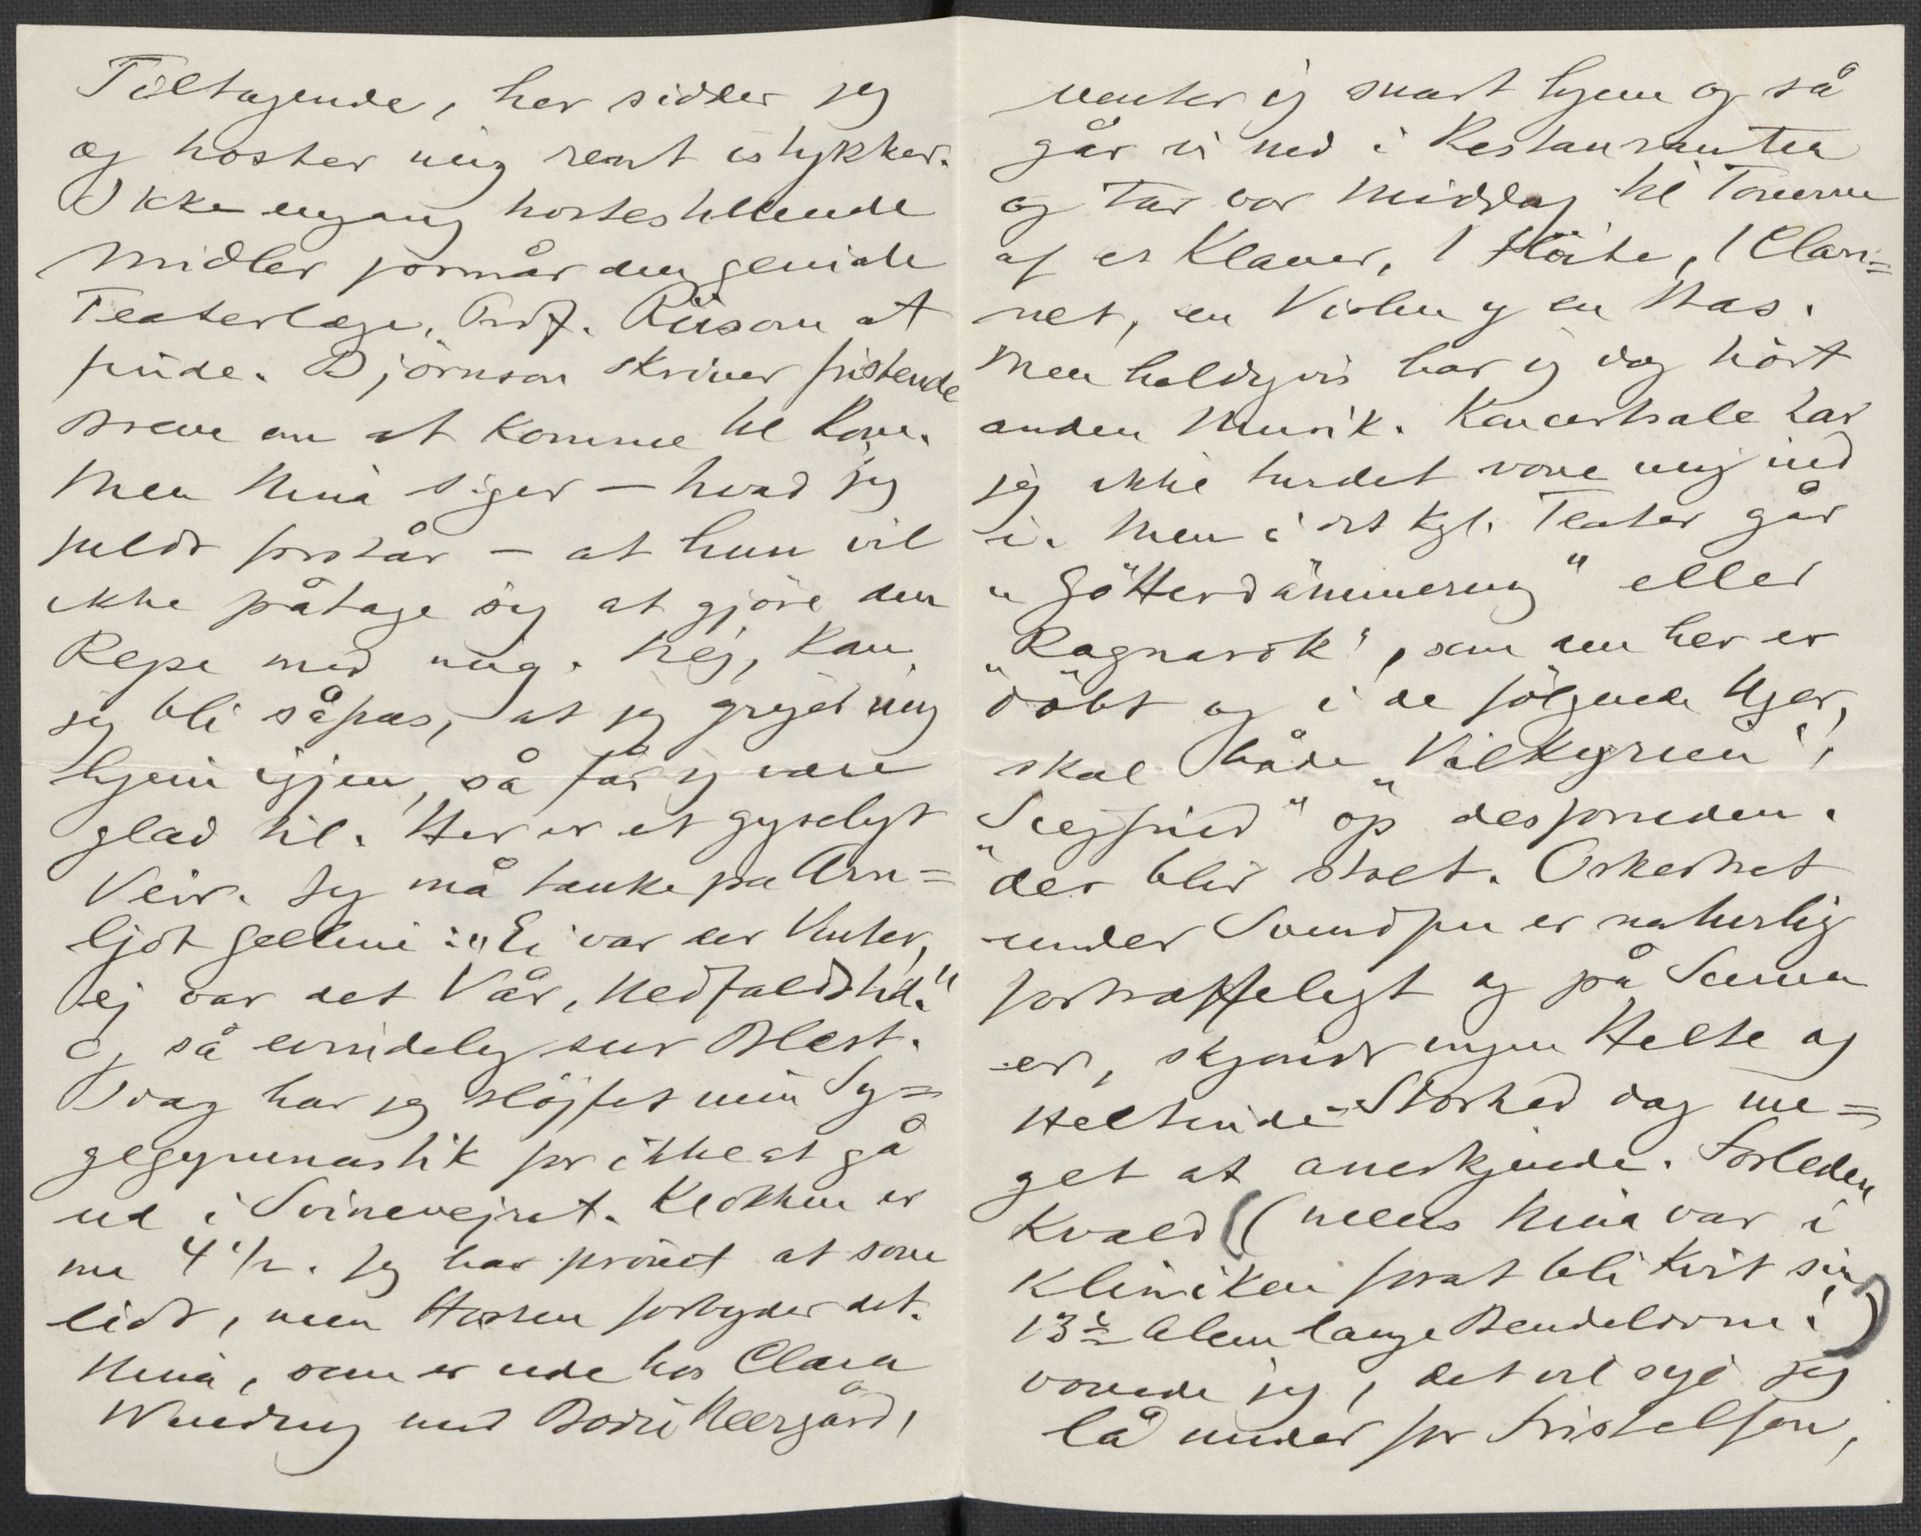 Tiltagende, her sidder jeg
og hoster mig rent istykker.
Ikke engang hostestillende
Midler formår den geniale
Teaterlæge, Prof. Riisom at
finde. Bjørnson skriver fristende
Breve om at komme til Rom.
Men Nina siger – hvad jeg
fuldt forstår – at hun vil
ikke påtage sig at gjöre den
Rejse med mig. Nej, kan
jeg bli såpas, at jeg grejer mig
hjem igjen, så får jeg være
glad til. Her er et gyseligt
Veir. Jeg må tænke på Arn=
ljot Gelline: "Ei var der Vinter,
ej var det Vår, Nedfaldstid."
Og så evindelig sur Blæst.
Idag har jeg slöjfet min Sy=
gegymnastik for ikke at gå
ud i Svinevejret. Klokken er
nu 4 1/2. Jeg har prövet at sove
lidt, men Hosten forbyder det.
Nina, som er ude hos Clara
Wendring med Bodil Neergård,
venter jeg snart hjem og så
går vi ned i Restauranten
og tar vor Middag til Tonerne
af et Klaver, 1 Flöite, 1 Clari=
net, en Violin og en Bas.
Men heldigvis har jeg dog hört
anden Musik. Koncertsale har
jeg ikke turdet vove mig ind
i. Men i det Kgl. Teater går
"Götterdämmerung" eller
"Ragnarok", som den her er
döbt og i de fölgende Uger,
skal både "Valkyrien",
"Siegfried" op desforuden.
der blir stelt. Orkestret
under Svendsen er naturlig
fortræffeligt og på Scenen
er, skjöndt ingen Helte og
Heltinde-Storhed dog me=
get at anerkjende. Forleden
Kvæld (mens Nina var i
Kliniken forat bli kvit sin
13 Alen lange Bendelorm!)
vovede jeg, det vil sige jeg
lå under for Fristelsen,